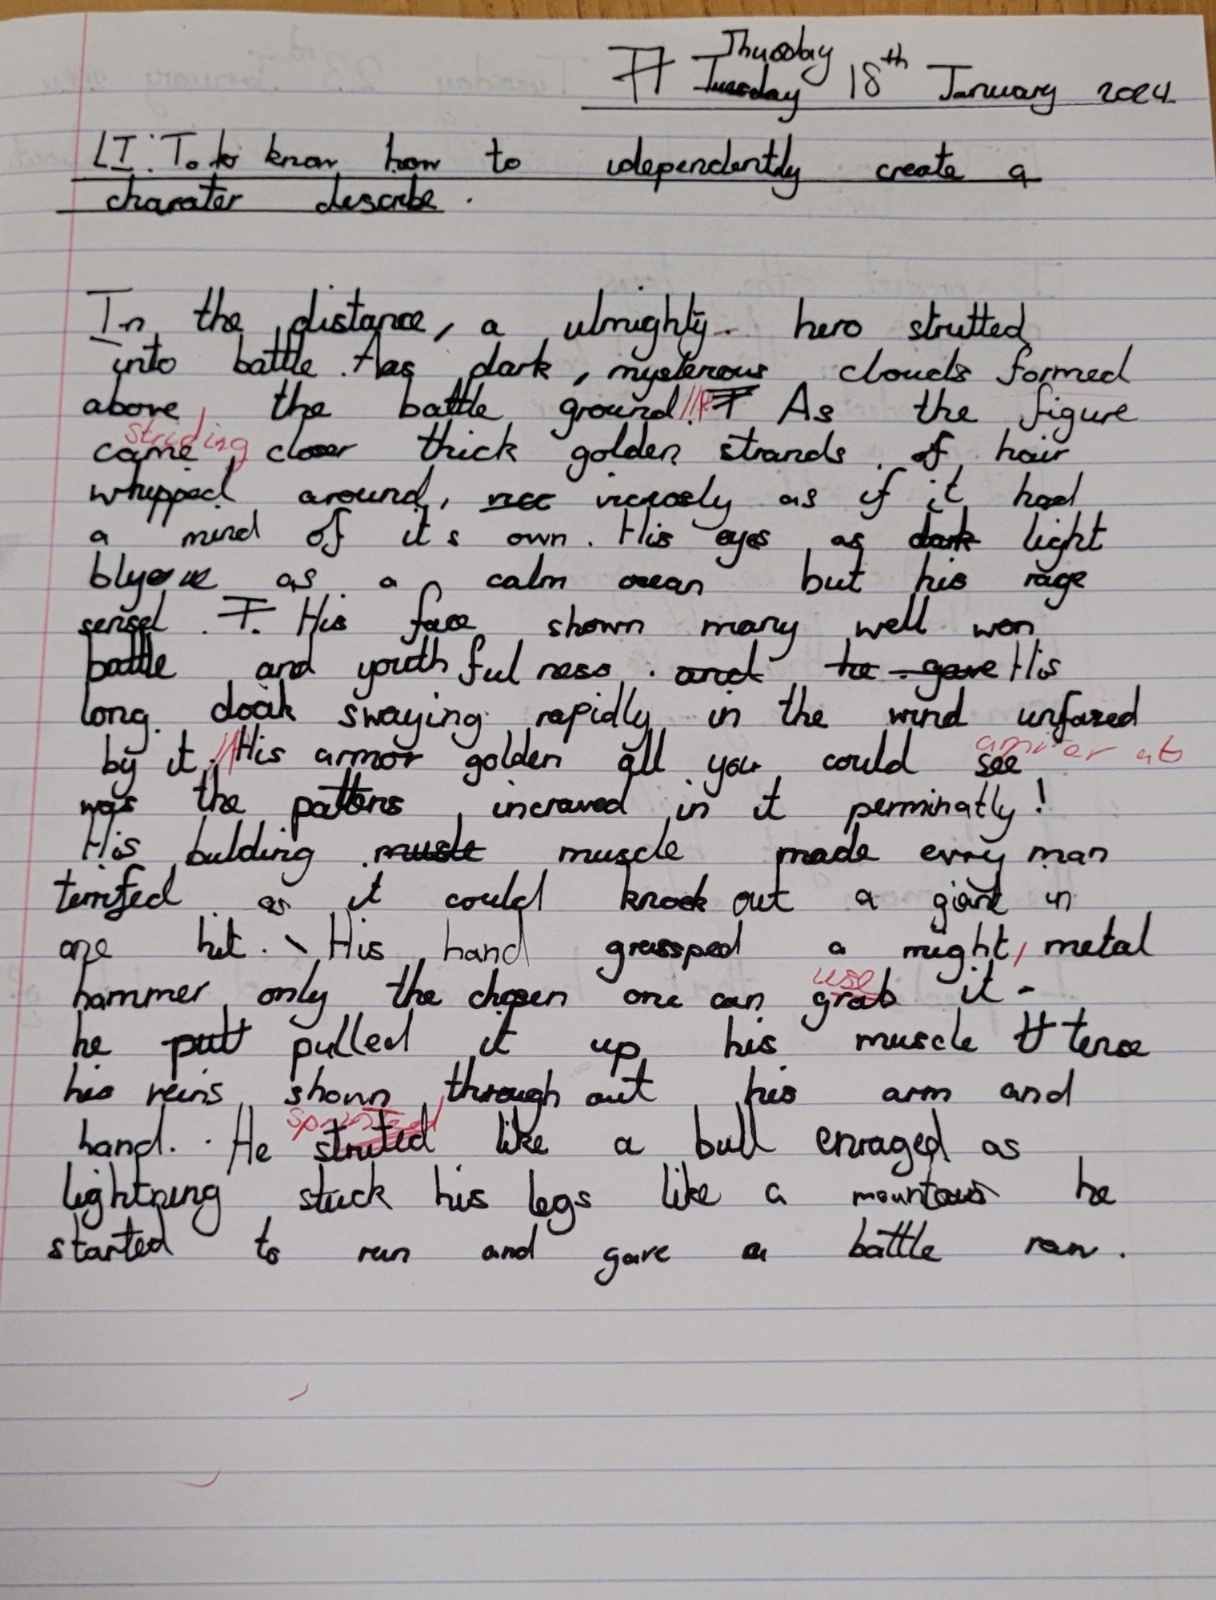 Thusday
Tuesday 18th January 2024
LI: To to know how to idependently create a
charater describe.
In the distance, a almighty hero strutted
into battle. Aas dark, mysterous clouds formed
above, the battle ground // As the figure
striding
came closer thick golden strands of hair
whipped around, viciously as if it had
a mind of it's own. His eyes as dark light
blue as a calm ocean but his rage
sensed. T. His face shown many well won
battle and youthfulness. and he gave His
long cloak swaying rapidly in the wind unfazed
by it. // His armor golden all you could see
amirer at
was the pattens incraved in it perminatly!
His bulding muscle muscle made evry man
terrifed as it could knock out a giant in
one hit. His hand grassped a might, metal
use
hammer only the chosen one can grab it
he pull pulled it up his muscle tense
his veins shown through out his arm and
sprinted
hand. He struted like a bull enraged as
lightning stuck his legs like a mountows he
started to run and gave a battle raw.